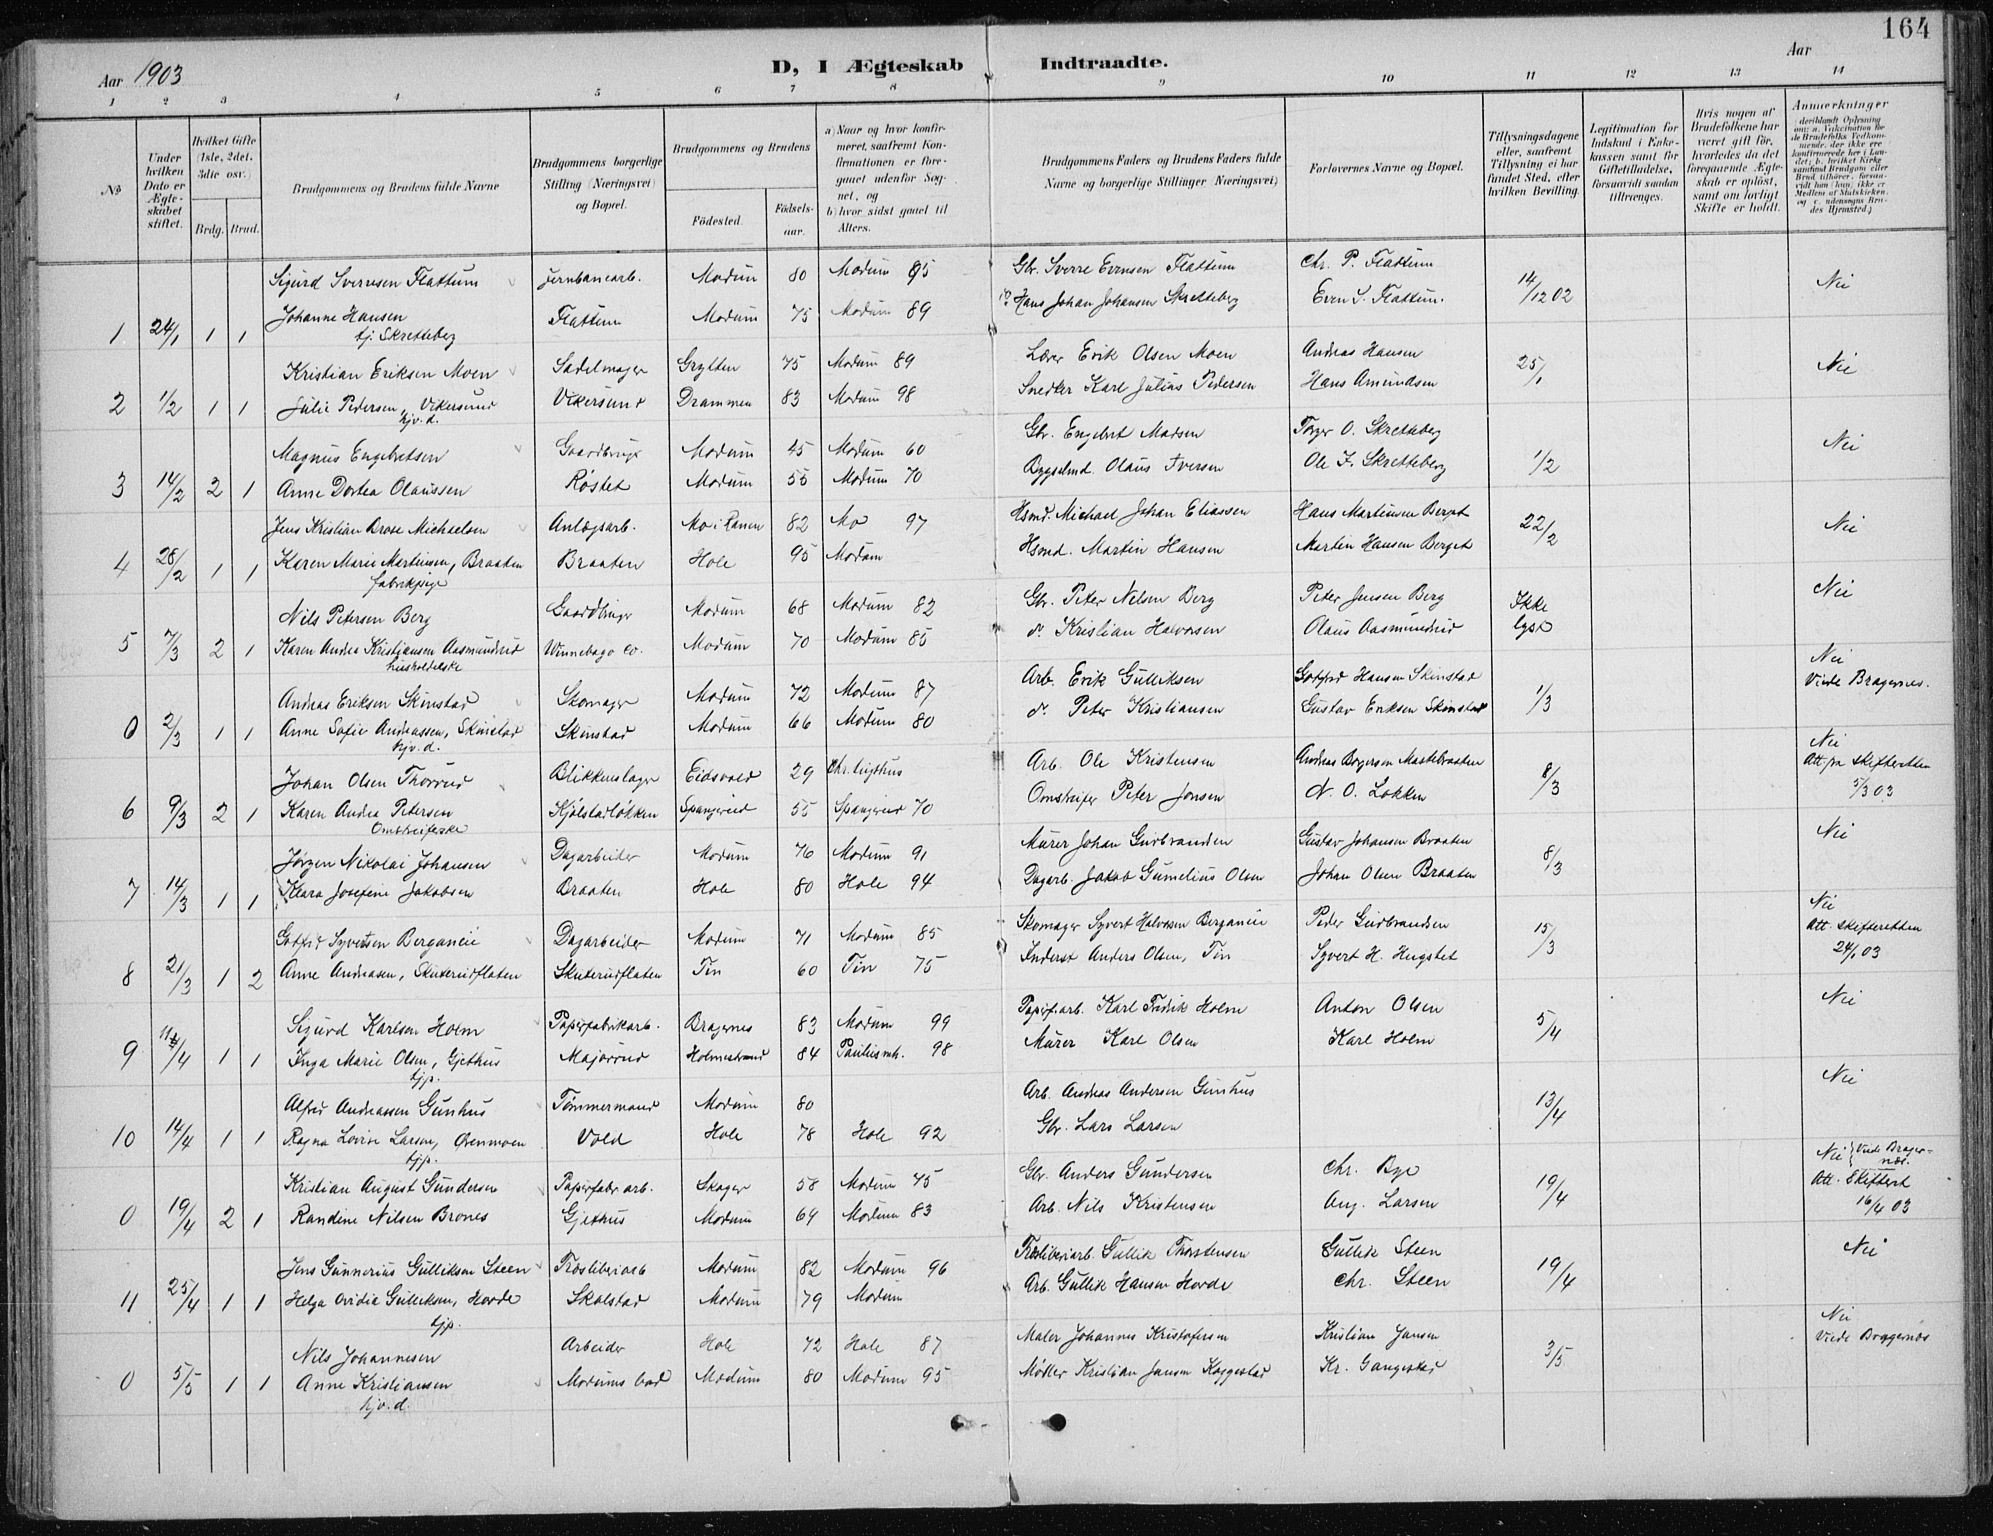 164
Aar 1903
D, I Ægteskab Indtraadte.
Aar
1 2 3 4 5 6 7 8 9 10 11 12 13 14
No
Under hvilken Dato er Ægteskabet stiftet.
Hvilket Gifte (1ste, 2det, 3die osv.)
Brdg. Brud.
Brudgommens og Brudens fulde Navne
Brudgommens borgerlige Stilling (Næringsvei) og Bopæl.
Brudgommens og Brudens
Fødested. Fødselsaar.
a) Naar og hvor konfirmeret, saafremt Konfirmationen er foregaaet udenfor Sognet, og
b) hvor sidst gaaet til Alters.
Brudgommens Faders og Brudens Faders fulde Navne og borgerlige Stillinger (Næringsvei)
Forlovernes Navne og Bopæl.
Tillysningsdagene eller, saafremt Tillysning ei har fundet Sted, efter hvilken Bevilling.
Legitimation for Indskud i Enkekassen samt for Giftetilladelse, forsaavidt saadan tiltrænges.
Hvis nogen af Brudefolkene har været gift før, hvorledes da det foregaaende Ægteskab er opløst, samt om lovligt Skifte er holdt.
Anmerkninger
Sigurd Sverresen Flattum Jernbanearb. Modum 80 Modum 95 Gbr. Sverre Evensen Flattum Chr. P. Flattum 14/12 02 Nei
1 24/1 1 1 Johanne Hansen Flattum Modum 75 Modum 89 Hans Johan Johansen Skretteberg Even S. Flattum.
tj. Skretteberg
Kristian Eriksen Moen Sadelmager Grytten 75 Modum 89 Lærer Erik Olsen Moen Andreas Hansen 25/1 Nei
2 1/2 1 1 Julie Pedersen, Vikersund Vikersund Drammen 83 Modum 98 Snedker Karl Julius Pedersen Hans Amundsen
hjv. d.
Magnus Engebretsen Gaardbruger Modum 45 Modum 60 Gbr. Engebret Madsen Torger O. Skretteberg 1/2 Nei
3 14/2 2 1 Anne Dortea Olaussen Røstet Modum 55 Modum 70 Bygselmd. Olaus Iversen Ole T. Skretteberg
Jens Kristian Brose Michaelsen Anlægsarb. Mo i Ranen 82 Mo 97 Hsmd. Michael Johan Eliassen Hans Martinsen Berget 22/2 Nei
4 28/2 1 1 Karen Marie Martinsen, Braaten Braaten Hole 95 Modum Hsmd. Martin Hansen Martin Hansen Berget
fabrikpige
Nils Petersen Berg Gaardbruger Modum 68 Modum 82 Gbr. Peter Nelsen Berg Peter Jensen Berg Ikke lyst Nei
5 7/3 2 1 Karen Andrea Kristiansen Aasmundrud Winnebago Co. Modum 70 Modum 85 do. Kristian Halvorsen Olaus Aasmundrud
husholderske
Andreas Eriksen Skinstad Skomager Modum 72 Modum 87 Arb. Erik Gulliksen Gotfred Hansen Skinstad 1/3 Nei
Viede Bragernes.
0 2/3 1 1 Anne Sofie Andreassen, Skinstad Skinstad Modum 66 Modum 80 do. Peter Kristiansen Gustav Eriksen Skinstad
hjv. d.
Johan Olsen Thorrud Blikkenslager Eidsvold 29 Chr. tugthus Arb. Ole Kristensen Andreas Borgersen Mastebraaten 8/3 Nei
Att. fra Skifteretten 5/3 03
6 9/3 2 1 Karen Andrea Petersen Kjølstadløkken Spangereid 55 Spangereid 70 Omstreifer Peter Jonsen N. O. Løkken
Omstreiferske
Jørgen Nikolai Johansen Dagarbeider Modum 76 Modum 91 Murer Johan Gudbrandsen Gustav Johansen Braaten 8/3 Nei
7 14/3 1 1 Klara Josefine Jakobsen Braaten Hole 80 Hole 94 Dagarb. Jakob Gumelius Olsen Johan Olsen Braaten
Gotfrid Syvertsen Berganeie Dagarbeider Modum 71 Modum 85 Skomager Syvert Halvorsen Berganeie Peder Gudbrandsen 15/3 Nei
Att. Skifteretten 24/1 03
8 21/3 1 2 Anne Andreasen, Skuterudflaten Skuterudflaten Tin 60 Tin 75 Inderst Anders Olsen, Tin Syvert H. Hugstet
Sigurd Karlsen Holm Papirfabrikarb. Bragernes 83 Modum 99 Papirf.arb. Karl Fridrik Holm Anton Olsen 5/4 Nei
9 11/4 1 1 Inga Marie Olsen, Gjethus Majorrud Holmestrand 84 Paulusmh. 98 Murer Karl Olsen Karl Holm
tjp.
Alfred Andreassen Gunhus Tømmermand Modum 80 Arb. Andreas Andersen Gunhus 13/4 Nei
10 14/4 1 1 Ragna Lovise Larsen, Ovenmoen Vold Hole 78 Hole 92 Gbr. Lars Larsen
tjp.
Kristian August Gundersen Papirfabr.arb. Skoger 58 Modum 75 Gbr. Anders Gundersen Chr. Bye 19/4 Nei Viede Bragernæs.
Att. Skifteret 16/4 03
0 19/4 2 1 Randine Nilsen Brones Gjethus Modum 69 Modum 83 Arb. Nils Kristensen Aug. Larsen
Jens Gunnerius Gulliksen Steen Træsliberiarb Modum 82 Modum 96 Træsliberiarb. Gullik Thorstensen Gullik Steen 19/4 Nei
11 25/4 1 1 Helga Ovidia Gulliksen, Hovde Skolstad Modum 79 Modum Arb. Gullik Hansen Hovde Chr. Steen
tjp.
Nils Johannesen Arbeider Hole 72 Hole 87 Maler Johannes Kristofersen Kristian Jansen 3/5 Nei
Viede Bragernæs
0 5/5 1 1 Anne Kristiansen Modums bad Modum 80 Modum 95 Møller Kristian Jansen Kaggestad Kr. Gangestad
hjv. d.